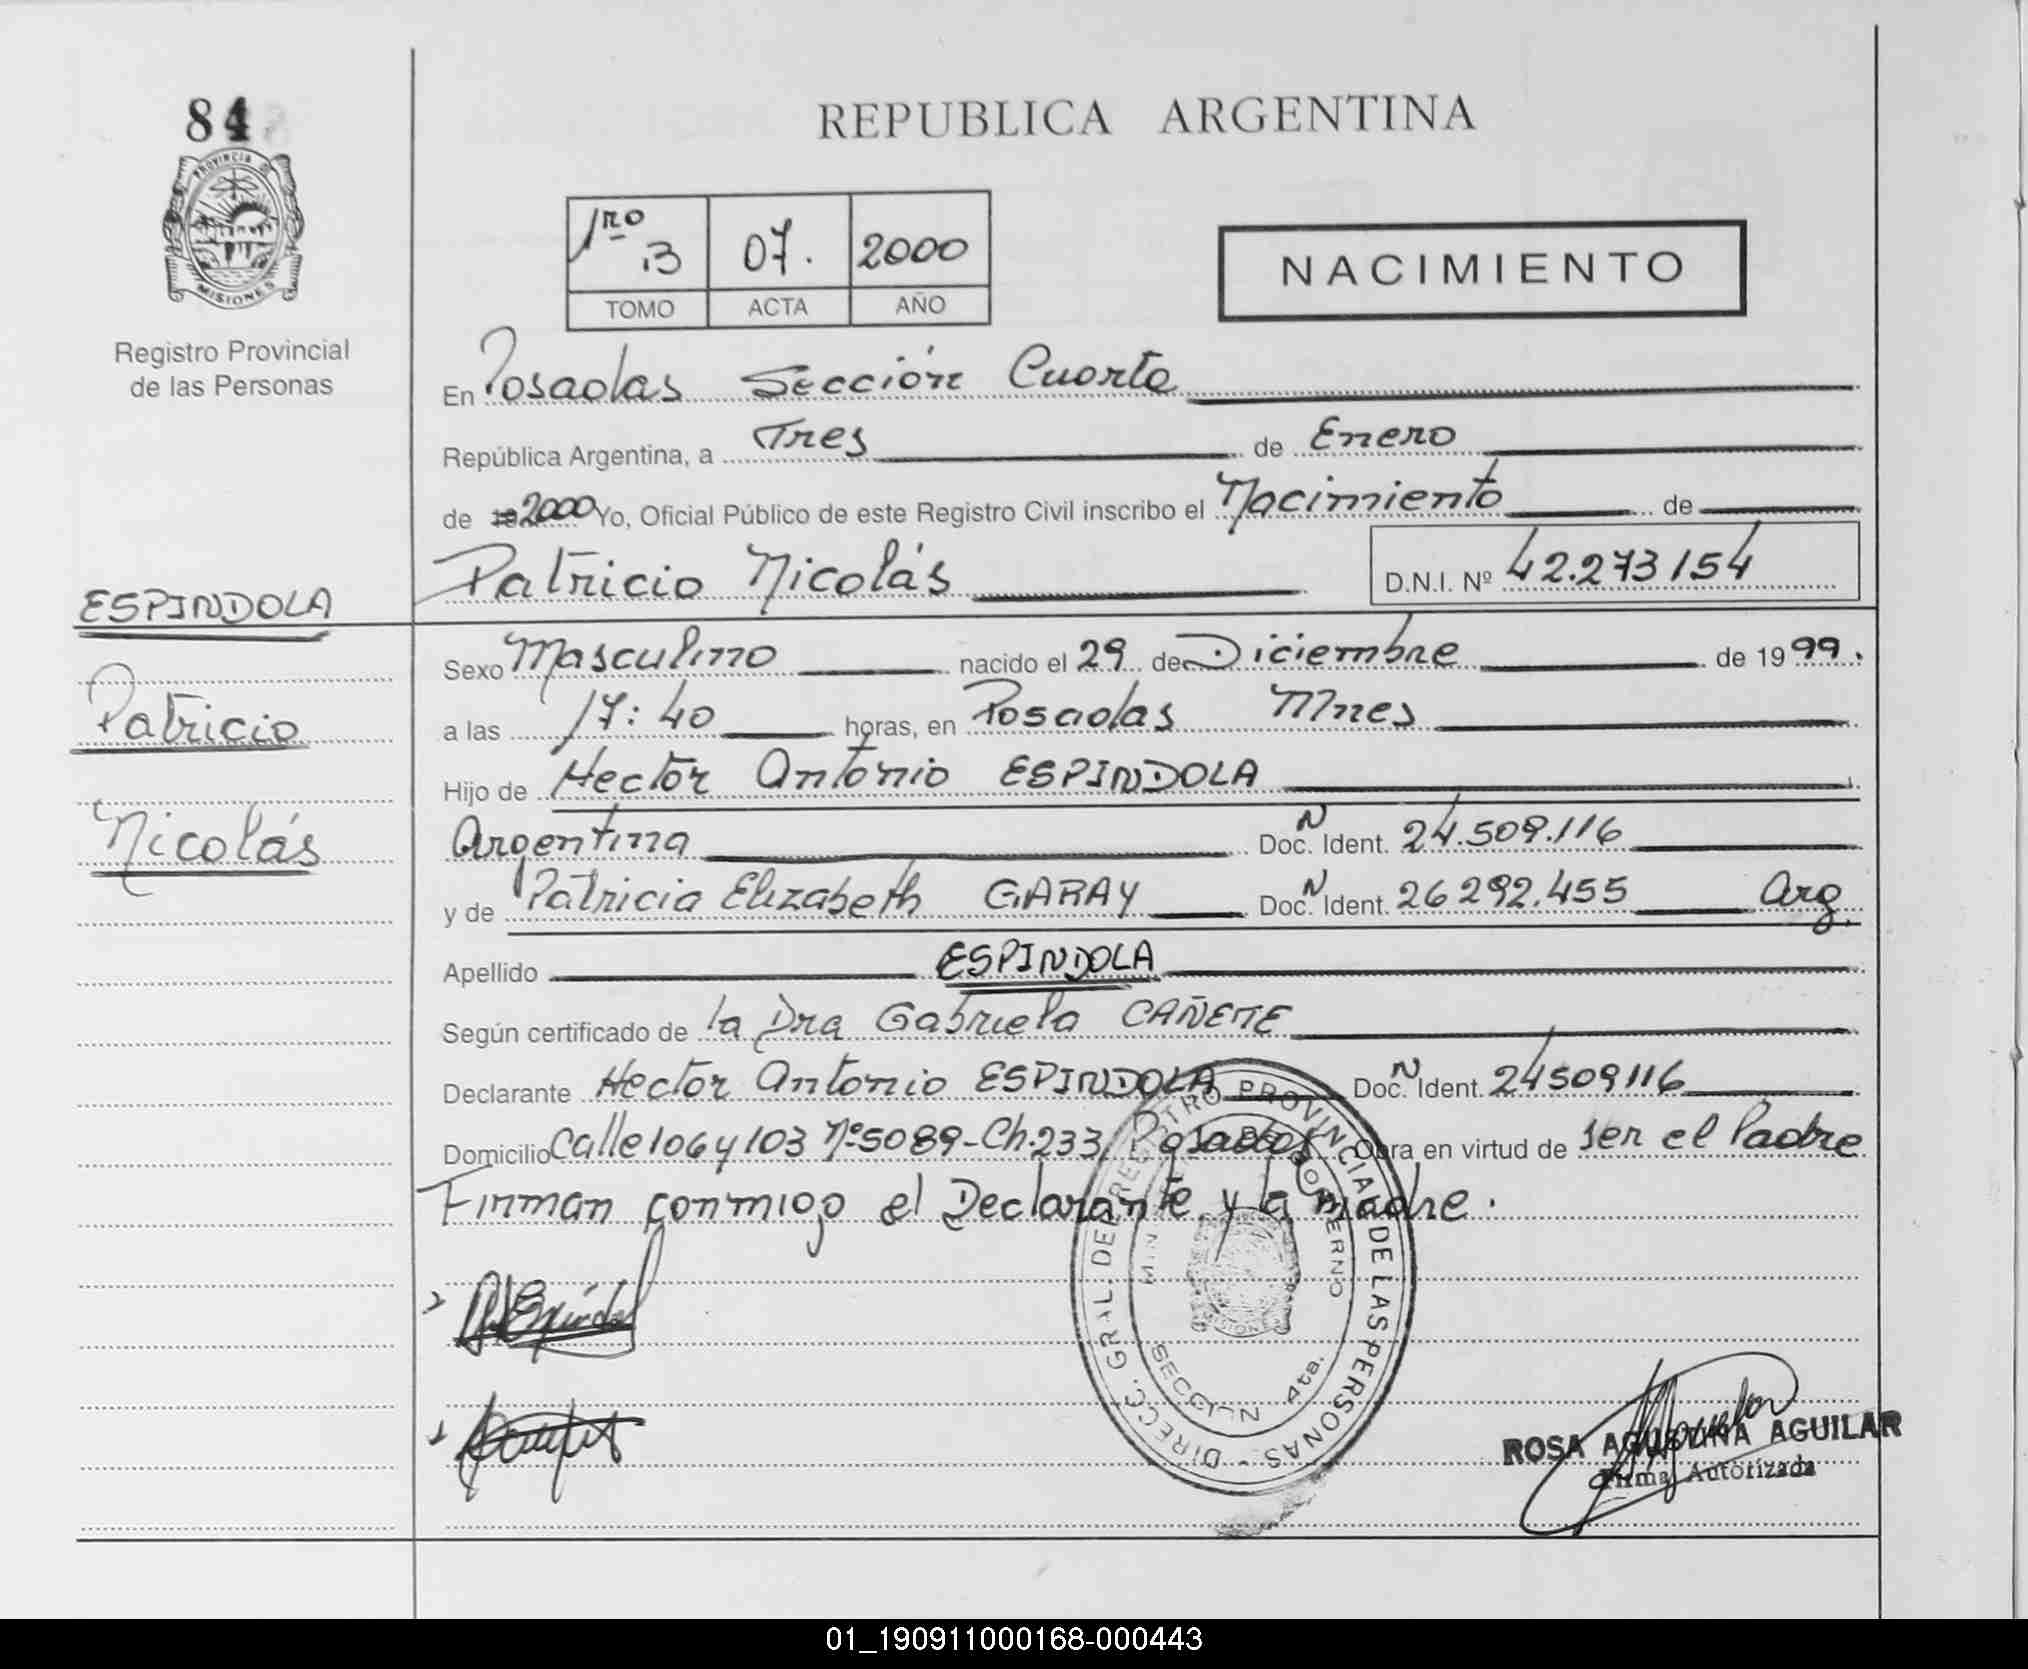 84
PROVINCIA DE
MISIONES
Registro Provincial
de las Personas
REPUBLICA ARGENTINA
1ro B 07. 2000
TOMO ACTA AÑO
NACIMIENTO
En Posadas Sección Cuarta
República Argentina, a Tres de Enero
de 2000 Yo, Oficial Público de este Registro Civil inscribo el Nacimiento de
Patricio Nicolás D.N.I. Nº 42.273154
ESPINDOLA
Patricio
Nicolás
Sexo Masculino nacido el 29 de Diciembre de 1999.
a las 17:40 horas, en Posadas Mnes
Hijo de Hector Antonio ESPINDOLA
Argentina Doc. N Ident. 24.509.116
y de Patricia Elizabeth GARAY Doc. N Ident. 26292.455 Arg.
Apellido ESPINDOLA
Según certificado de la Dra Gabriela CAÑETE
Declarante Hector Antonio ESPINDOLA Doc. N Ident. 24509116
Domicilio Calle 106 y 103 Nº 5089-Ch.233, Posadas Obra en virtud de ser el Padre
Firman conmigo el Declarante y la madre.
DIRECC. GRAL. DEL REGISTRO PROVINCIAL DE LAS PERSONAS -
GOBIERNO
SECCION 4ta.
MISIONES
ROSA AGUSTINA AGUILAR
Firma Autorizada
01_190911000168-000443